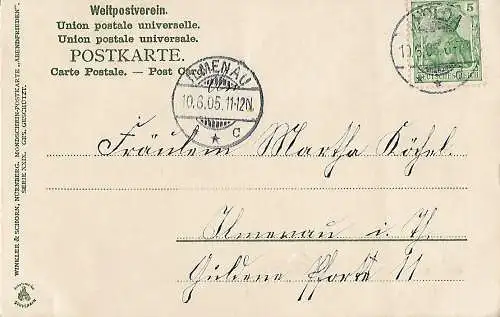 Weltpostverein.
Union postale universelle.
Union postale universale.
POSTKARTE.
Carte Postale. — Post Card
ILMENAU
10.6.05.11-12N.
* c
5
10.6.05
Fräulein Martha Köchel.
Ilmenau i. Th.
Güldene Pforte 11
WINKLER & SCHORN, NÜRNBERG, MONDSCHEIN-POSTKARTE „ABENDFRIEDEN".
SERIE XXIX. GES. GESCHÜTZT.